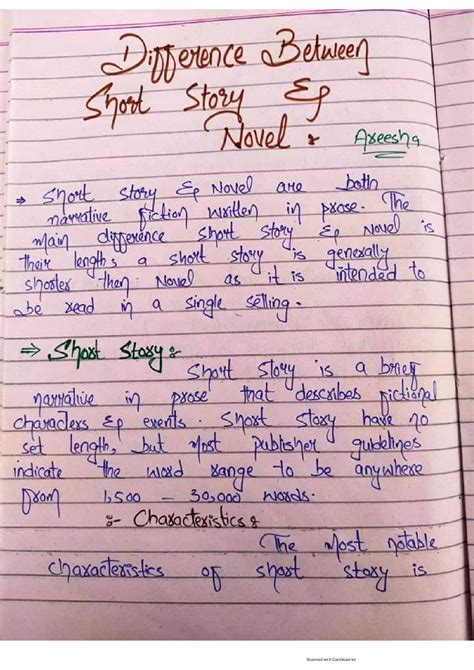 Difference Between
Short Story &
Novel :
Areesha
⇒ Short story & Novel are both
narrative fiction written in prose. The
main difference short story & Novel is
their length, a short story is generally
shorter then Novel as it is intended to
be read in a single selling.
⇒ Short Story :-
Short story is a brief
narrative in prose that describes fictional
characters & events. Short story have no
set length, but most publisher guidelines
indicate the word range to be anywhere
from 1,500 — 30,000 words.
:- Characteristics :
The Most notable
characteristics of short story is
Scanned with CamScanner